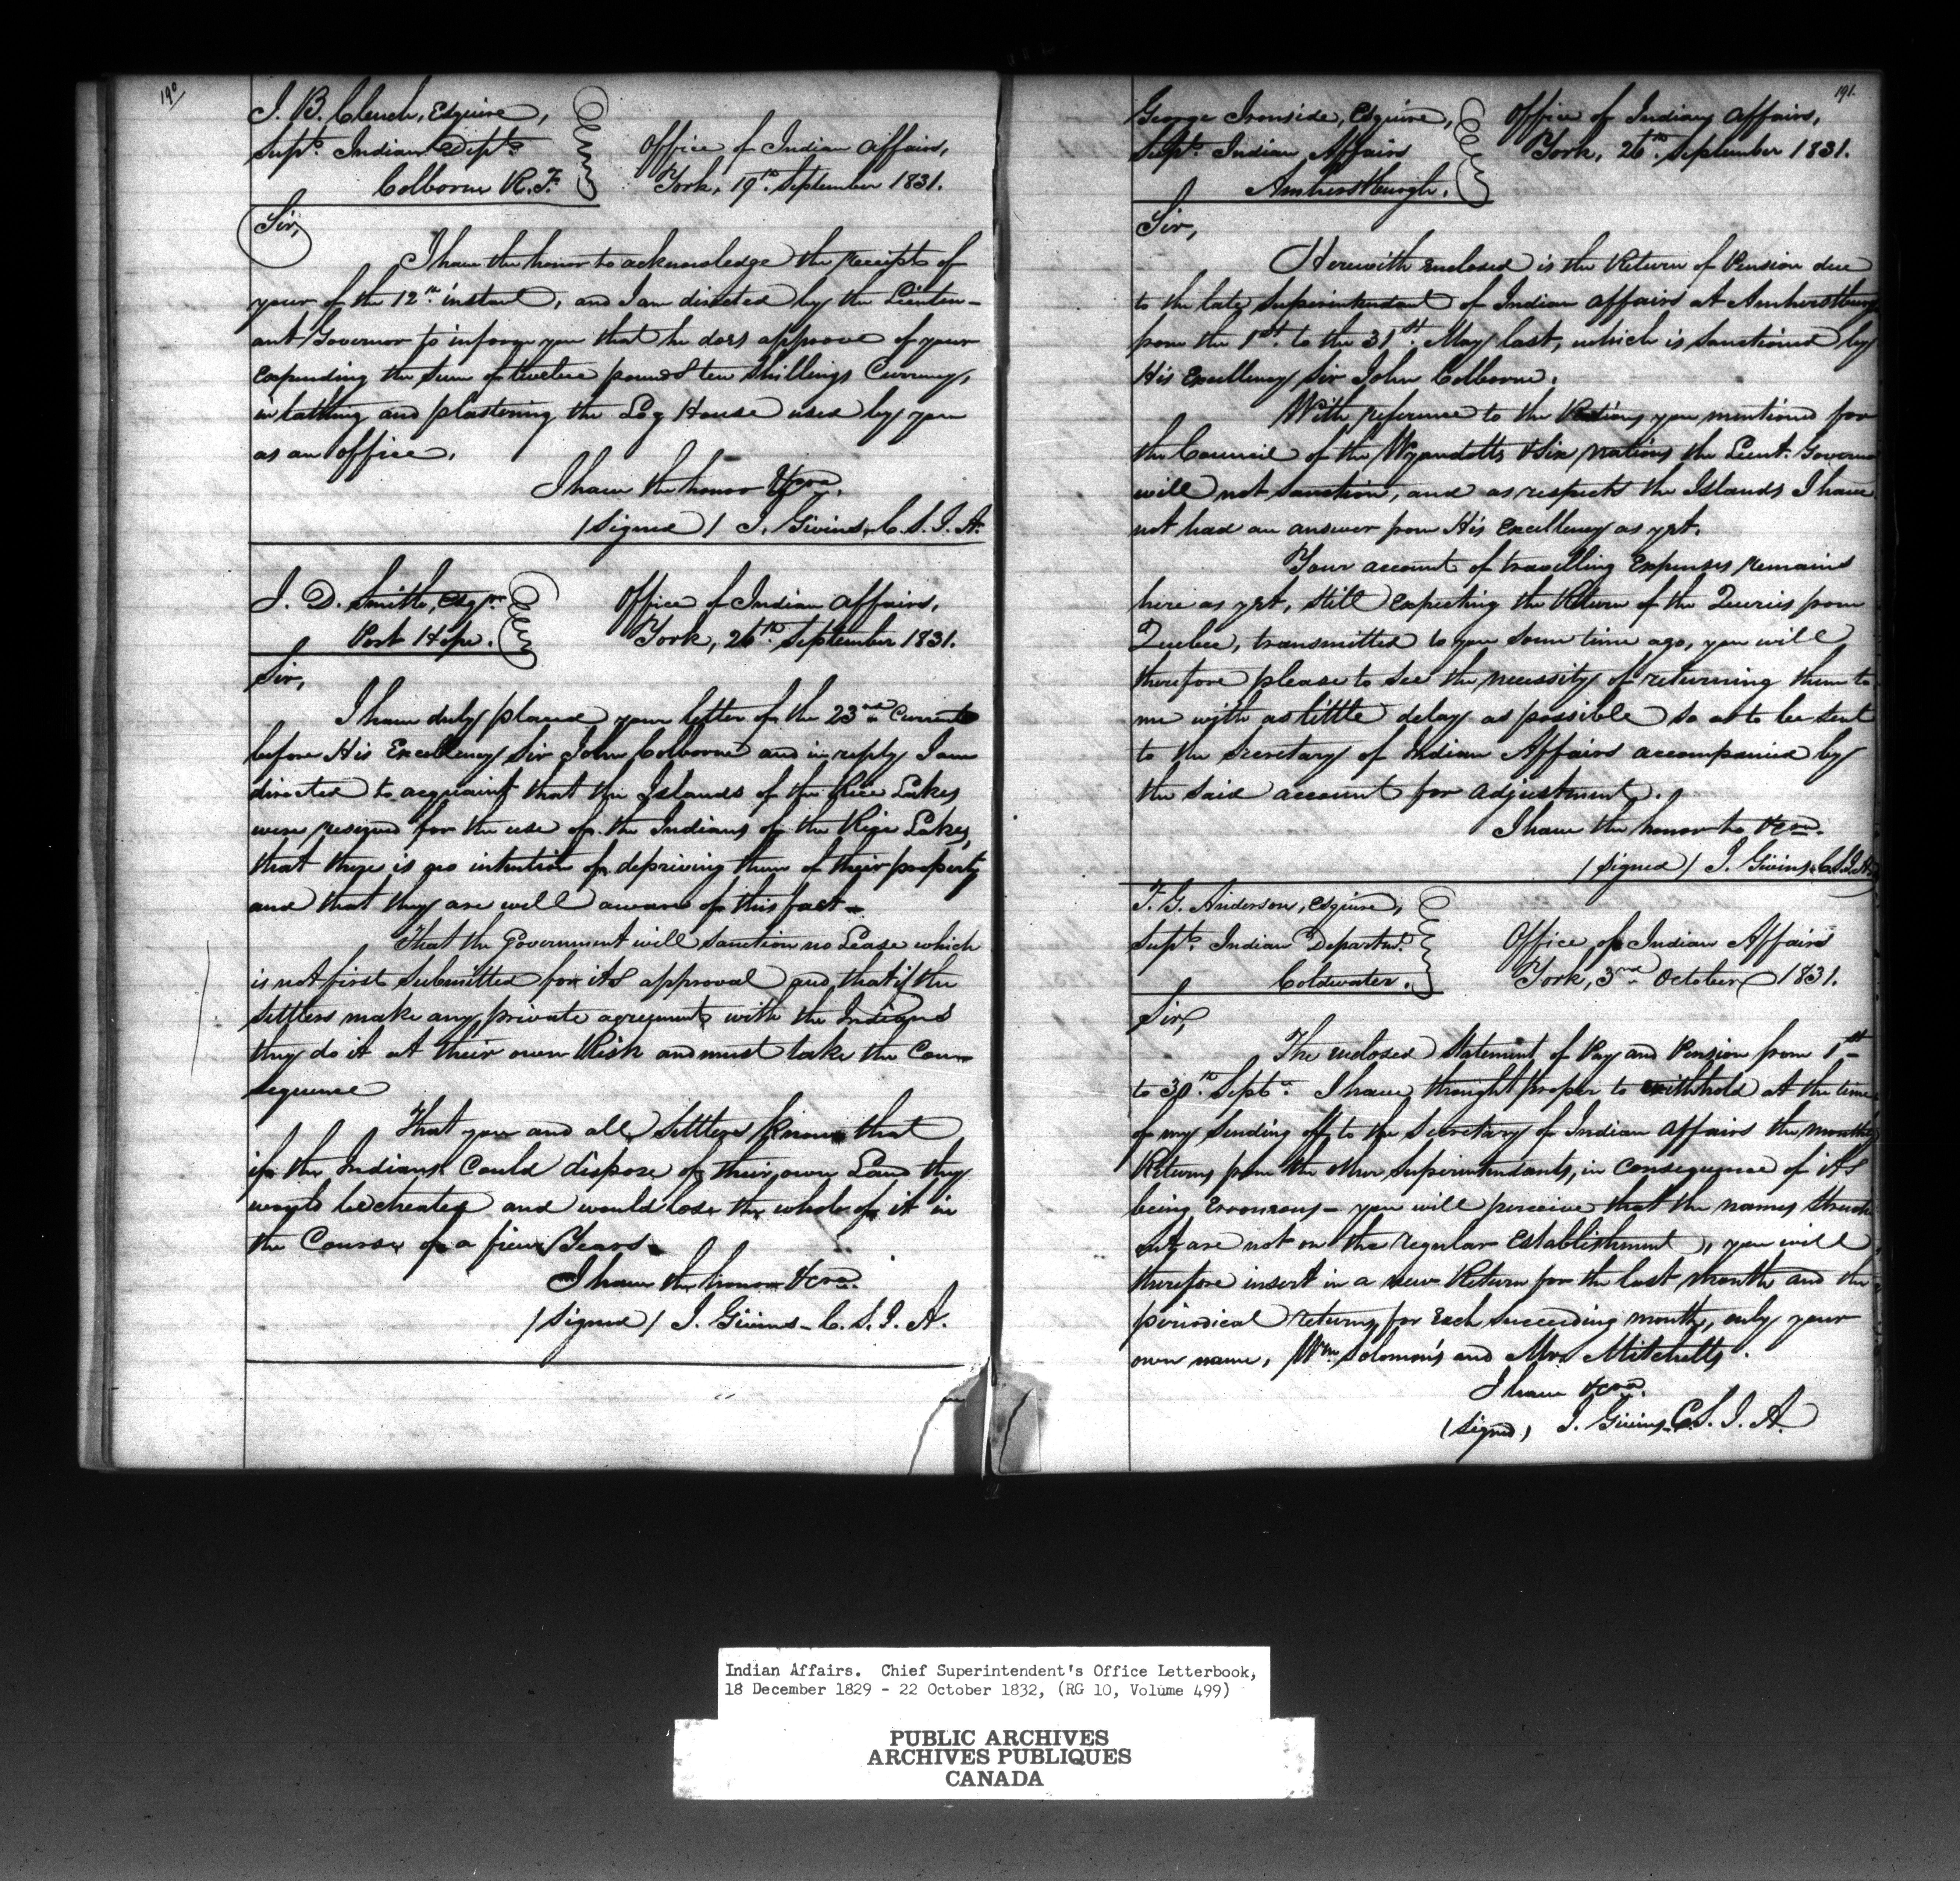 190
J. B. Clench, Esquire,
Supt. Indian Dept.
Colborne R. T.
Office of Indian Affairs,
York, 19th. September 1831.
Sir,
I have the honor to acknowledge the receipt of
your of the 12th instant, and I am directed by the Lieuten-
ant Governor to inform you that he does approve of your
expending the sum of twelve pounds ten shillings Currency,
in lathing and plastering the Log House used by you
as an office.
I have the honor &ca.
/signed/ J. Givins, C. S. I. A.
J. D. Smith, Esqre.
Port Hope.
Office of Indian Affairs,
York, 26th. September 1831.
Sir,
I have duly placed your letter of the 23rd Current
before His Excellency Sir John Colborne and in reply I am
directed to acquaint that the Islands of the Rice Lakes
were reserved for the use of the Indians of the Rice Lakes,
that there is no intention of depriving them of their property
and that they are well aware of this fact-
That the Government will sanction no Lease which
is not first submitted for its approval and that if the
Settlers make any private agreements with the Indians
they do it at their own Risk and must take the Con-
sequence
That you and all Settlers know that
if the Indians could dispose of their own Land they
would be cheated and would lose the whole of it in
the Course of a few Years.
I have the honor &ca.
/signed/ J. Givins - C. S. I. A.
191.
George Ironside, Esquire,
Supt. Indian Affairs
Amherstburgh.
Office of Indian Affairs,
York, 26th. September 1831.
Sir,
Herewith enclosed is the Return of Pension due
to the late Superintendant of Indian Affairs at Amherstburg
from the 1st. to the 31st. May last, which is sanctioned by
His Excellency Sir John Colborne.
With reference to the Rations you mentioned for
the Council of the Wyandotts & Six Nations the Lieut. Governor
will not sanction, and as respects the Islands I have
not had an answer from His Excellency as yet.
Your account of travelling Expenses remains
here as yet, still expecting the Return of the Queries from
Quebec, transmitted to you some time ago, you will
therefore please to see the necessity of returning them to
me with as little delay as possible so as to be sent
to the Secretary of Indian Affairs accompanied by
the said account for adjustment.
I have the honor to &ca.
/signed/ J. Givins C.S.I.A.
T. G. Anderson, Esquire,
Supt. Indian Departmt.
Coldwater.
Office of Indian Affairs
York, 3rd October 1831.
Sir,
The enclosed Statement of Pay and Pension from 1st
to 30th. Septr. I have thought proper to withhold at the time
of my sending off to the Secretary of Indian Affairs the monthly
Returns from the other Superintendants, in consequence of its
being Erroneous - you will perceive that the names struck
out are not on the regular Establishment, you will
therefore insert in a new Return for the last month and the
periodical returns for each succeeding month, only your
own name, Wm. Solomon's and Mrs Mitchells.
I have &ca.
(signed) J. Givins C.S.I.A.
Indian Affairs. Chief Superintendent's Office Letterbook,
18 December 1829 - 22 October 1832, (RG 10, Volume 499)
PUBLIC ARCHIVES
ARCHIVES PUBLIQUES
CANADA